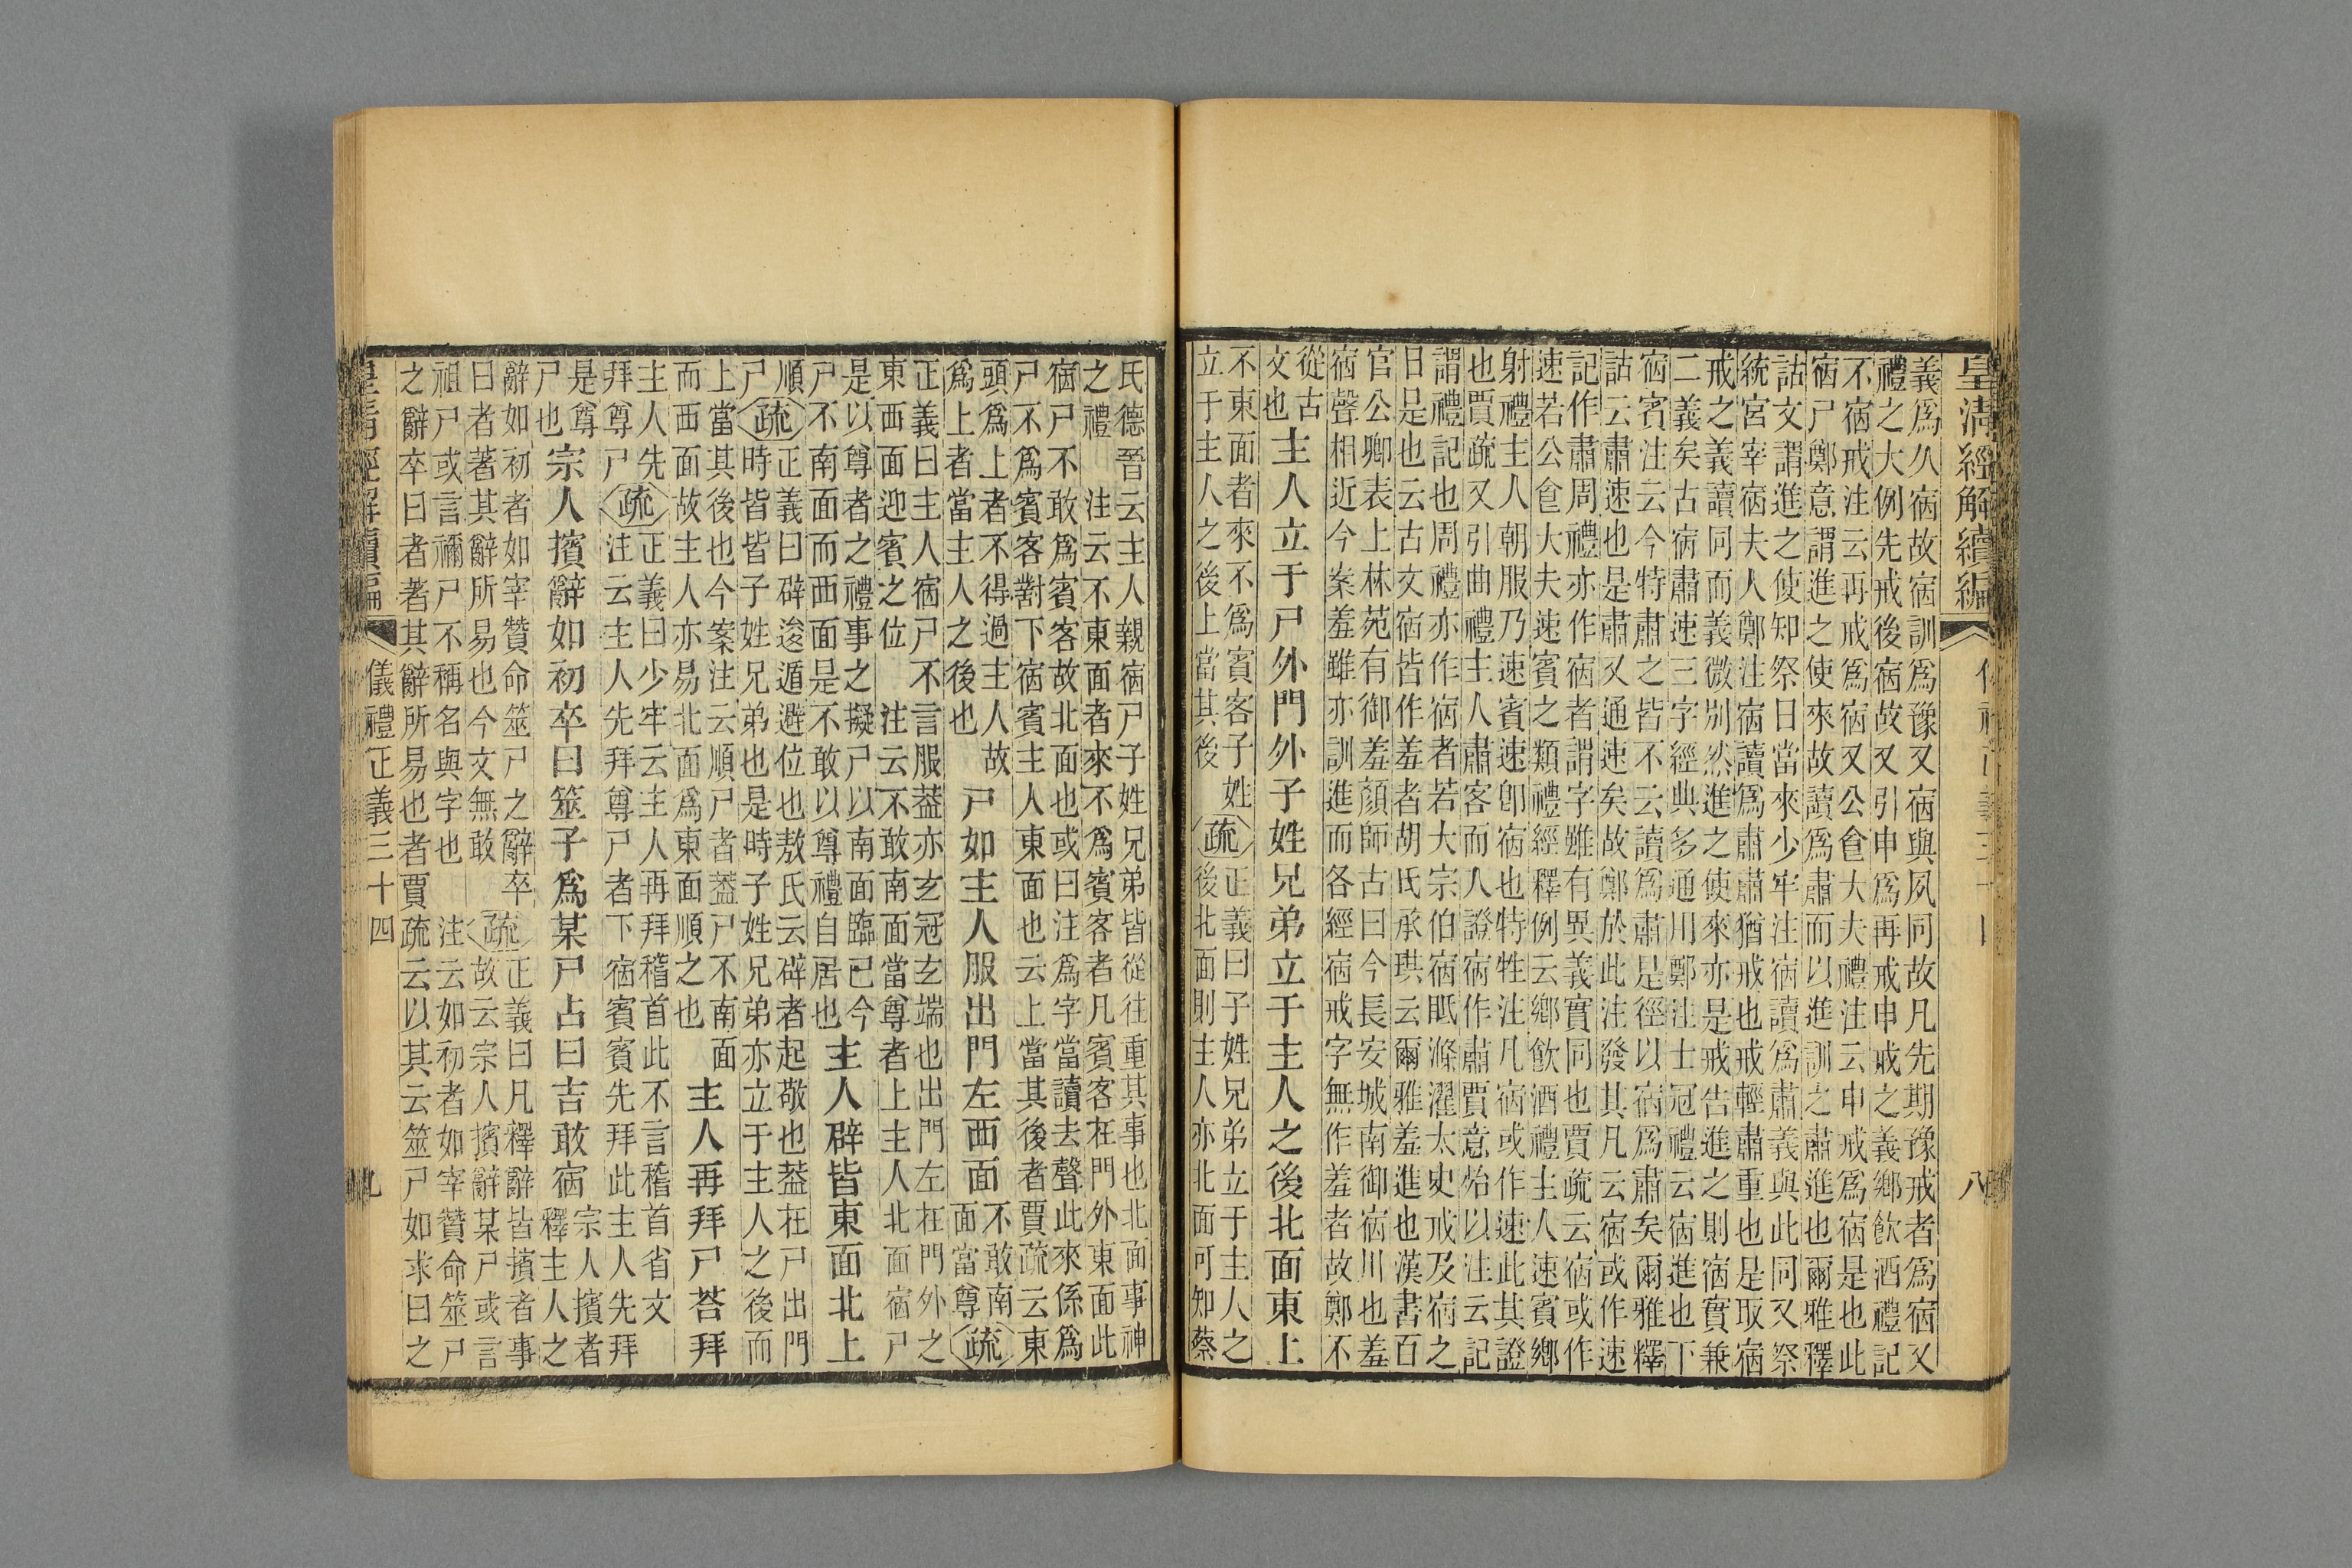 皇清經解續編
八
義爲久宿故宿訓爲豫又宿與夙同故凡先期豫戒者爲宿又
禮之大例先戒後宿故又引申爲再戒申戒之義鄉飲酒禮記
不宿戒注云再戒爲宿又公食大夫禮注云申戒爲宿是也此
宿尸鄭意謂進之使來故讀爲肅而以進訓之肅進也爾雅釋
詁文謂進之使知祭日當來少牢注宿讀爲肅義與此同又祭
統宮宰宿夫人鄭注宿讀爲肅肅猶戒也戒輕肅重也是取宿
戒之義讀同而義微別然進之使來亦是戒告進之則宿實兼
二義矣古宿肅速三字經典多通用鄭注士冠禮云宿進也下
宿賓注云今特肅之皆不云讀爲肅是徑以宿爲肅矣爾雅釋
詁云肅速也是肅又通速矣故鄭於此注發其凡云宿或作速
記作肅周禮亦作宿者謂字雖有異義實同也賈疏云宿或作
速若公食大夫速賓之類禮經釋例云鄉飲酒禮主人速賓鄉
射禮主人朝服乃速賓速卽宿也特牲注凡宿或作速此其證
也賈疏又引曲禮主人肅客而入證宿作肅賈意殆以注云記
謂禮記也周禮亦作宿者若大宗伯宿眂滌濯大史戒及宿之
日是也云古文宿皆作羞者胡氏承珙云爾雅羞進也漢書百
官公卿表上林苑有御羞顏師古曰今長安城南御宿川也羞
宿聲相近今案羞雖亦訓進而各經宿戒字無作羞者故鄭不
從古
文也
主人立于尸外門外子姓兄弟立于主人之後北面東上
不東面者來不爲賓客子姓
立于主人之後上當其後
疏
正義曰子姓兄弟立于主人之
後北面則主人亦北面可知蔡
氏德晉云主人親宿尸子姓兄弟皆從往重其事也北面事神
之禮 注云不東面者來不爲賓客者凡賓客在門外東面此
宿尸不敢爲賓客故北面也或曰注爲字當讀去聲此來係爲
尸不爲賓客對下宿賓主人東面也云上當其後者賈疏云東
頭爲上者不得過主人故
爲上者當主人之後也
尸如主人服出門左西面
不敢南
面當尊
疏
正義曰主人宿尸不言服蓋亦玄冠玄端也出門左在門外之
東西面迎賓之位 注云不敢南面當尊者上主人北面宿尸
是以尊者之禮事之擬尸以南面臨己今
尸不南面而西面是不敢以尊禮自居也
主人辟皆東面北上
順
尸
疏
正義曰辟逡遁避位也敖氏云辟者起敬也蓋在尸出門
時皆皆子姓兄弟也是時子姓兄弟亦立于主人之後而
上當其後也今案注云順尸者蓋尸不南面
而西面故主人亦易北面爲東面順之也
主人再拜尸荅拜
主人先
拜尊尸
疏
正義曰少牢云主人再拜稽首此不言稽首省文
注云主人先拜尊尸者下宿賓賓先拜此主人先拜
是尊
尸也
宗人擯辭如初卒曰筮子爲某尸占曰吉敢宿
宗人擯者
釋主人之
辭如初者如宰贊命筮尸之辭卒
曰者著其辭所易也今文無敢
疏
正義曰凡釋辭皆擯者事
故云宗人擯辭某尸或言
祖尸或言禰尸不稱名與字也 注云如初者如宰贊命筮尸
之辭卒曰者著其辭所易也者賈疏云以其云筮尸如求曰之
皇清經解續編
儀禮正義三十四
九